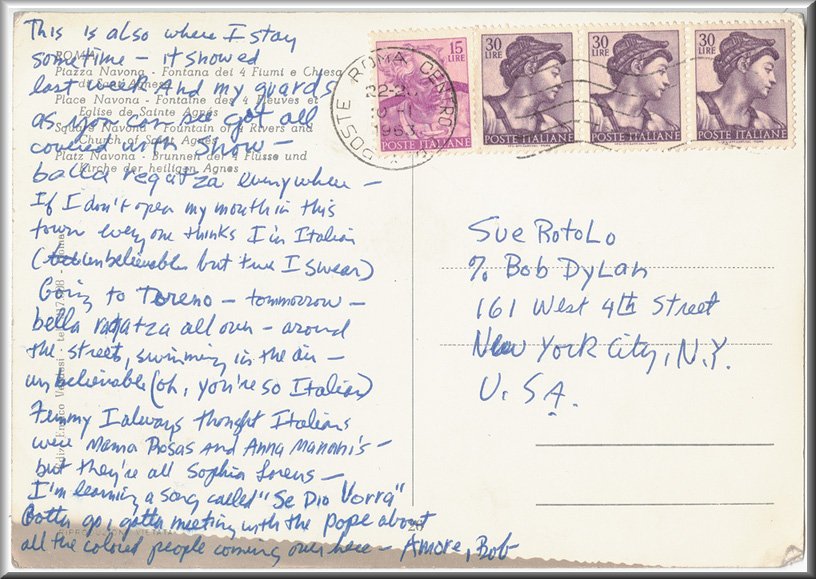 This is also where I stay
sometime – it snowed
last week And my guards
as you can see got all
covered with snow –
balla regatza everywhere –
If I don't open my mouth in this
town every one thinks I'm Italian
(unbelievable but true I swear)
Going to Toreno – tommorrow –
bella ragatza all over – around
the streets, swimming in the air –
unbelievable (oh, you're so Italian)
Funny I always thought Italians
were Mama Rosas And Anna Mannani's –
but they're all Sophia Lorens –
I'm learning a song called "Se Dio Vorra"
Gotta go, gotta meeting with the pope about
all the colored people coming over here – Amore, Bob
ROMA
Piazza Navona - Fontana dei 4 Fiumi e Chiesa
Place Navona - Fontaine des 4 Fleuves et
Eglise de Sainte Agnès
Square Navona - Fountain of 4 Rivers and
Church of Saint Agnes
Platz Navona - Brunnen der 4 Flüsse und
Kirche der heiligen Agnes
15
LIRE
POSTE ITALIANE
30
LIRE
POSTE ITALIANE
30
LIRE
POSTE ITALIANE
30
LIRE
POSTE ITALIANE
POSTE ROMA CENTRO
1963
Sue RotoLo
% Bob DyLan
161 West 4th Street
New York City, N.Y.
U.S.A.